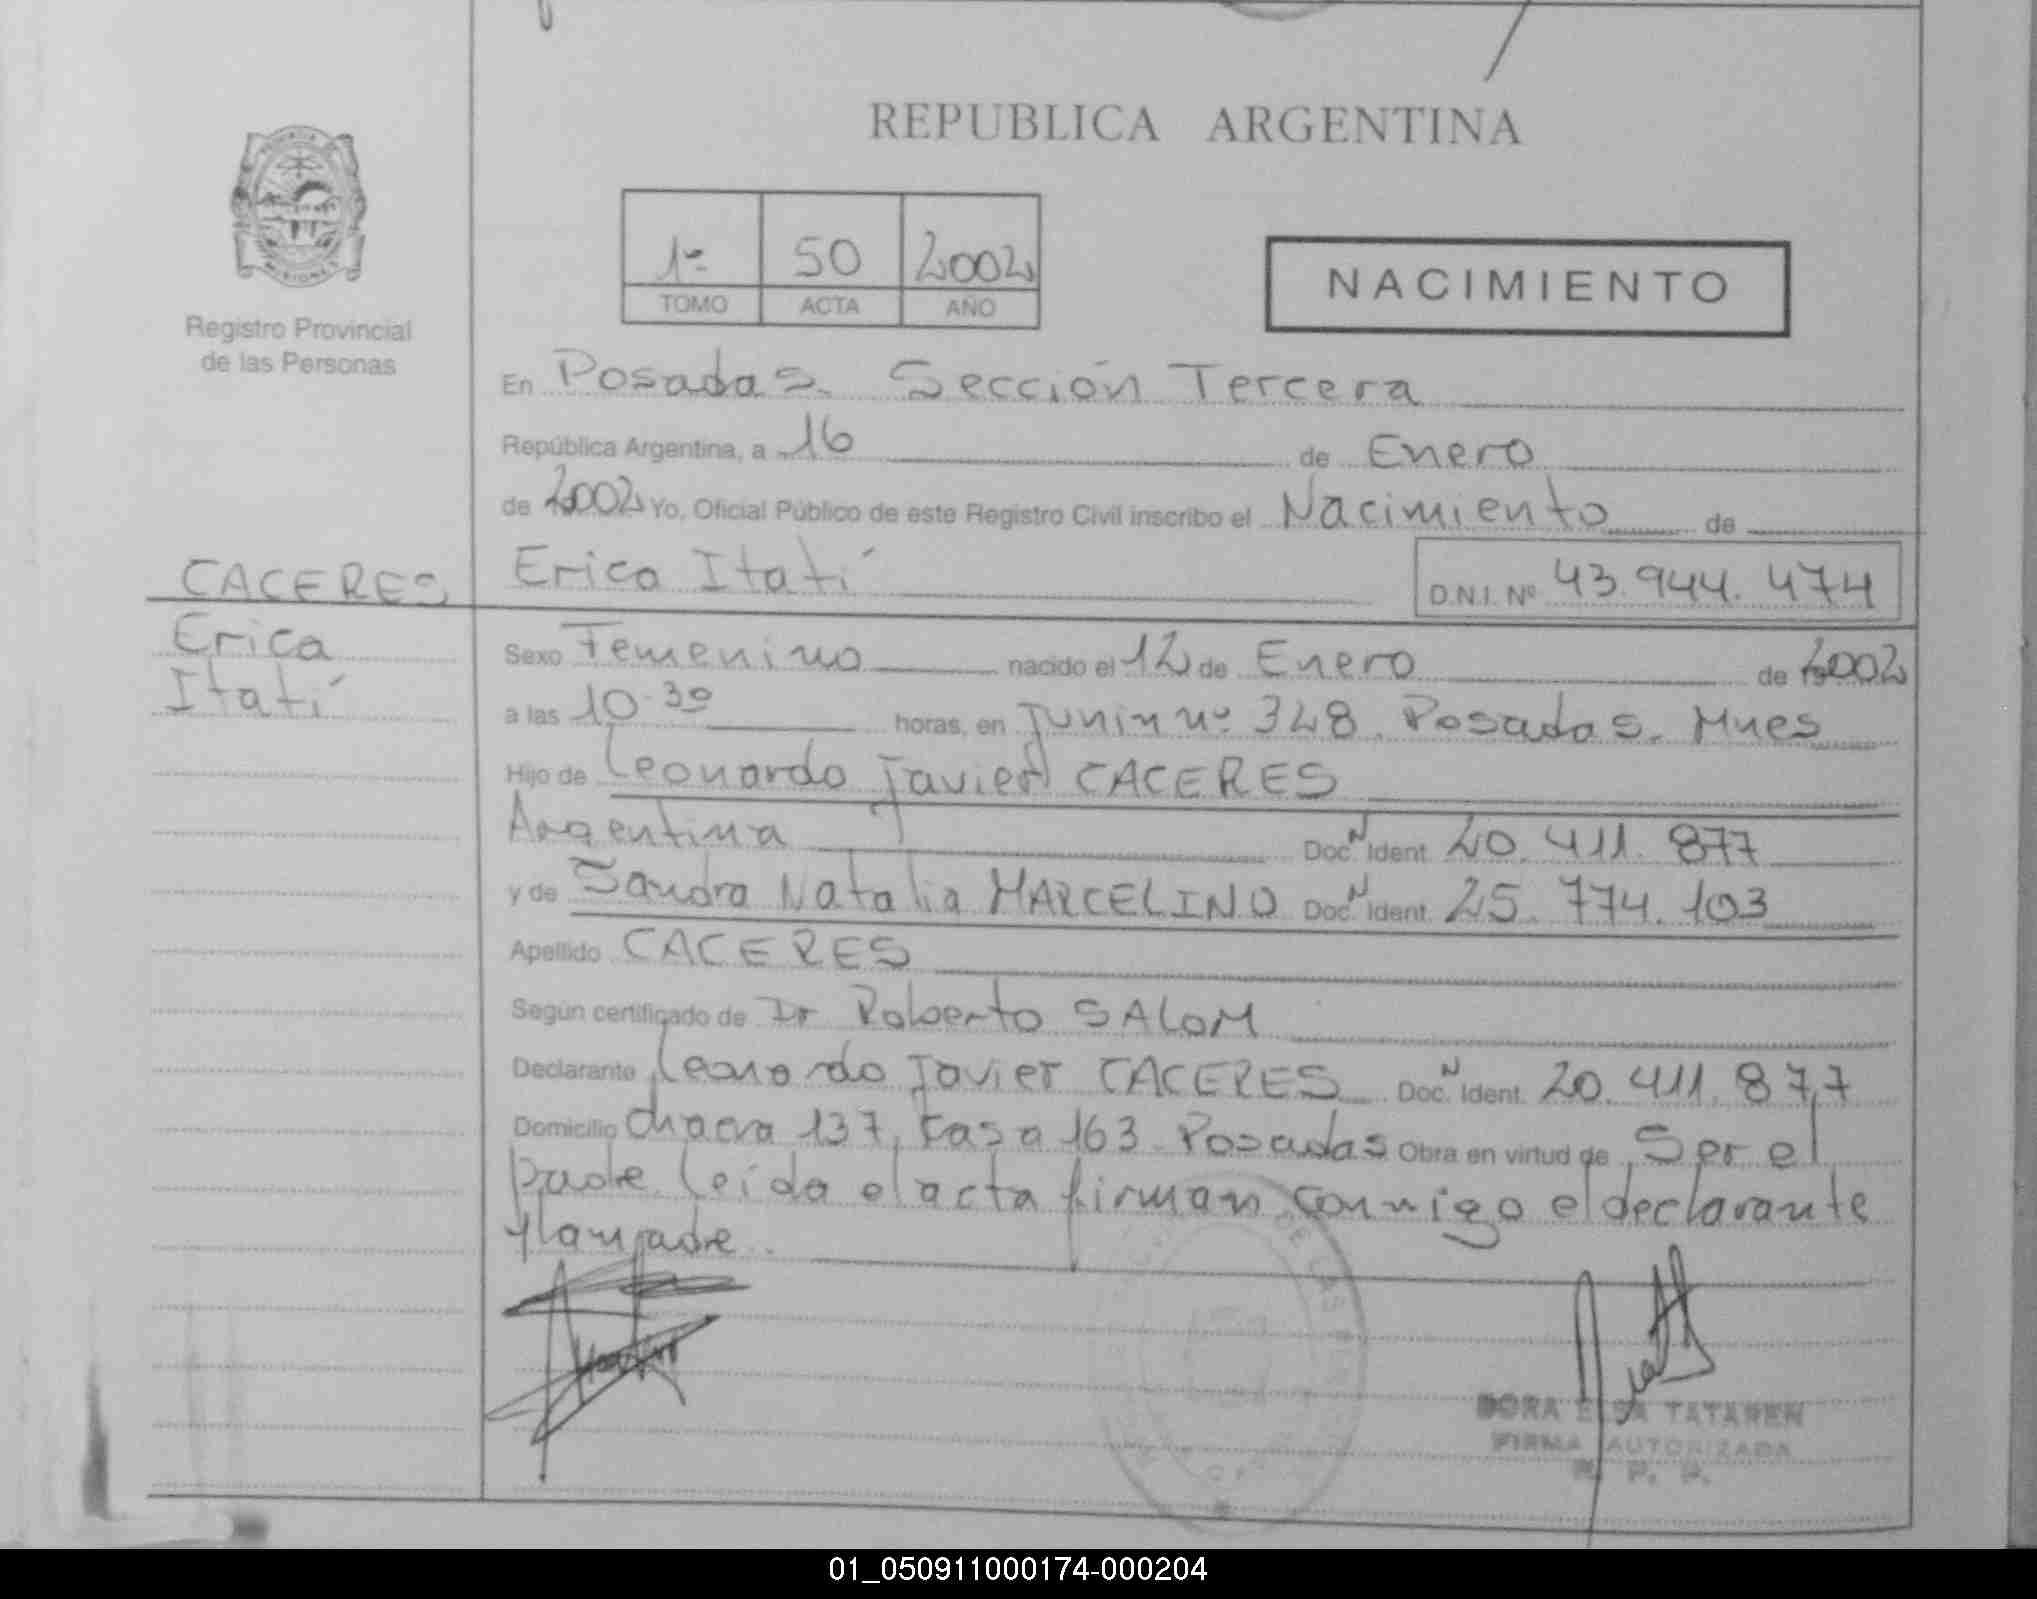 REPUBLICA ARGENTINA
MISIONES
Registro Provincial
de las Personas
1º 50 2002
TOMO ACTA AÑO
NACIMIENTO
En Posadas. Sección Tercera
República Argentina, a 16 de Enero
de 2002 Yo, Oficial Público de este Registro Civil inscribo el Nacimiento de
CACERES
Erica
Itatí
Erica Itatí D.N.I. Nº 43.944.474
Sexo Femenino nacido el 12 de Enero de 2002
a las 10.30 horas, en Junin nº 328. Posadas. Mnes
Hijo de Leonardo Javier CACERES
Argentina Doc. N Ident. 20.411.877
y de Sandra Natalia MARCELINO Doc. N Ident. 25.774.103
Apellido CACERES
Según certificado de Dr Roberto SALOM
Declarante Leonardo Javier CACERES Doc. N Ident. 20.411.877
Domicilio Chacra 137, Casa 163. Posadas Obra en virtud de Ser el
padre. Leída el acta firman conmigo el declarante
y la madre.
DE LAS
DORA ELSA TATAREN
FIRMA AUTORIZADA
R. P. P.
01_050911000174-000204